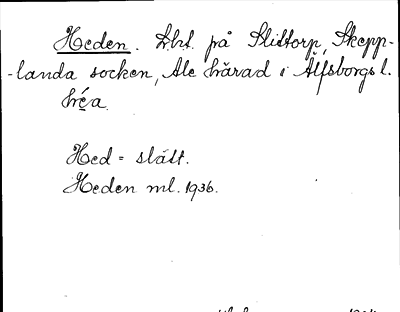 Heden. Lht. på Slittorp, Skepp-
-landa socken, Ale härad i Älfsborgs l.
hę́a.
Hed = slätt.
Heden ml. 1936.